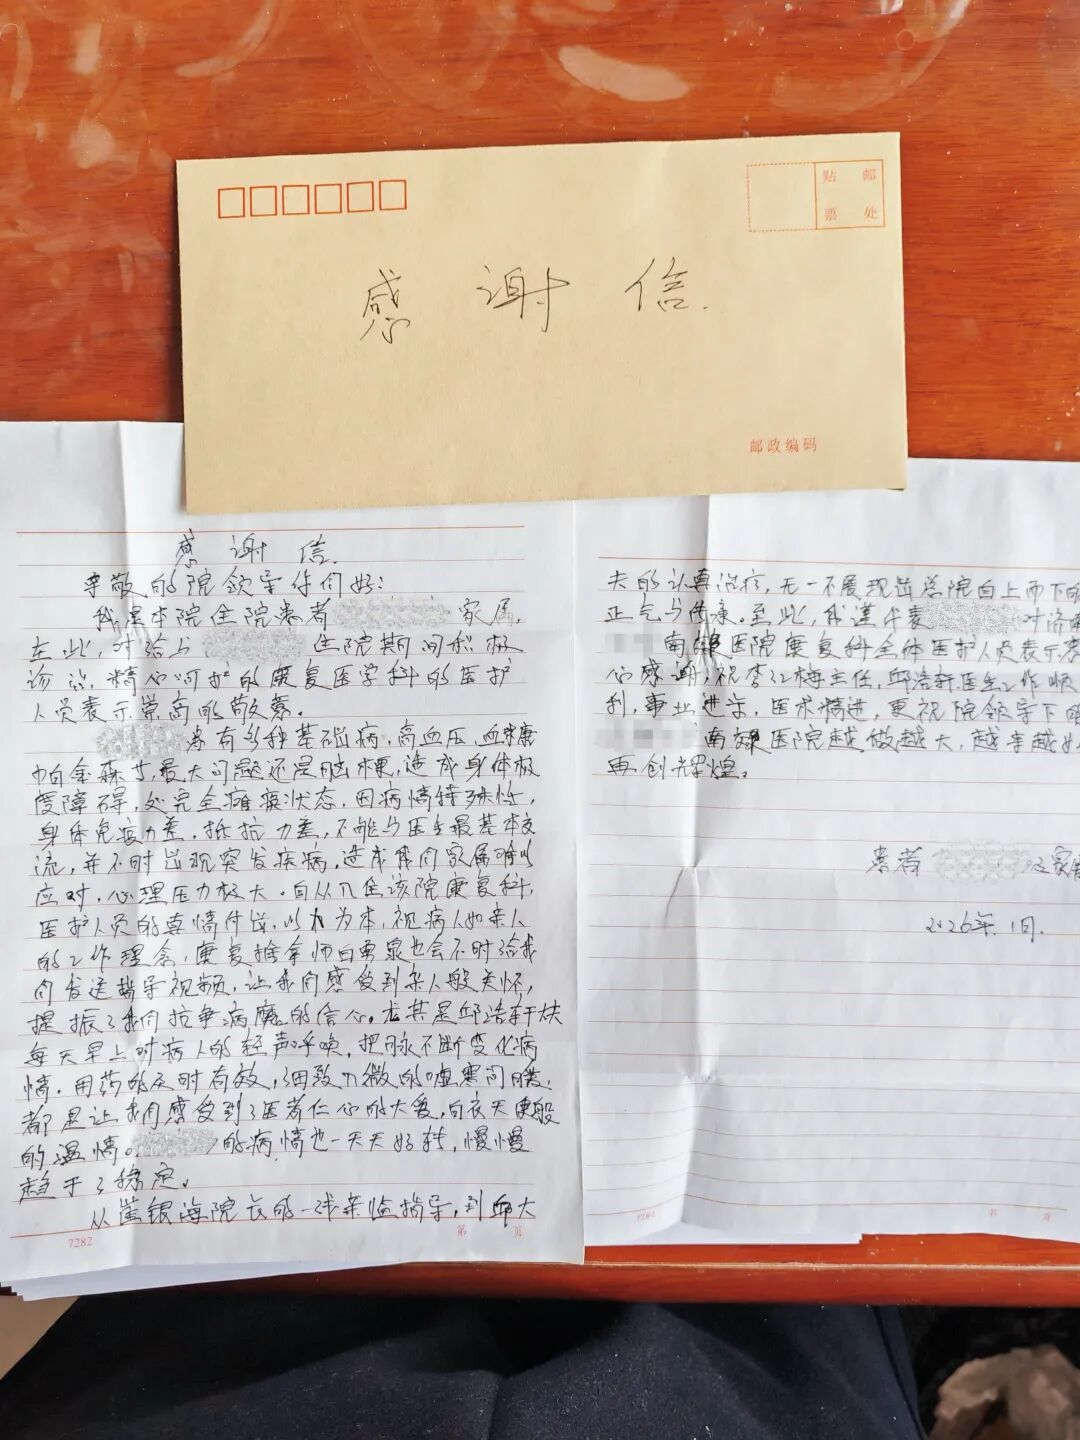 贴 邮
票 处
感 谢 信.
邮政编码
感 谢 信.
尊敬的院领导你们好:
我是本院住院患者 家属,
在此,对给与 住院期间积极
诊治,精心呵护的康复医学科的医护
人员表示崇高的敬意。
患有多种基础病,高血压,血糖
帕金森,最大问题还是脑梗,造成身体极
度障碍,处完全瘫痪状态,因病情特殊性,
身体免疫力差.抵抗力差,不能与医生最基本交
流,并不时出现突发疾病,造成我们家属难以
应对,心理压力极大.自从入住该院康复科,
医护人员的真情付出,以人为本,视病人如亲人
的工作理念,康复推拿师白 也会不时给我
们发送指导视频,让我们感受到亲人般关怀,
提振了我们抗争病魔的信心。尤其是邱浩轩大夫
每天早上对病人的轻声呼唤,把脉不断变化病
情.用药的及时有效,细致入微的嘘寒问暖,
都是让我们感受到了医者仁心的大爱,白衣天使般
的温情。 的病情也一天天好转,慢慢
趋于了稳定。
从崔银海院长的一线亲临指导,到邱大
7282
第 页
夫的认真治疗,无一不展现出总院自上而下的
正气与健康.至此,我谨代表 对济南
南郊医院康复科全体医护人员表示衷
心感谢,祝李红梅主任,邱浩轩医生工作顺
利,事业进步,医术精进,更祝院领导下的
南郊医院越做越大,越幸越好
再创辉煌。
患者 及家属
2026年.1月.
7282
第 页